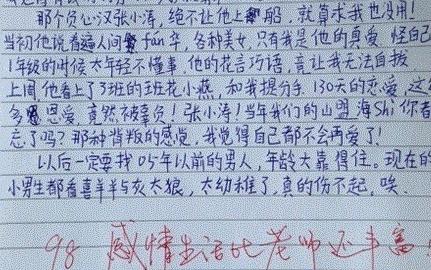 那个负心汉张小涛，绝不让他上船，就算求我也没用！
当初他说看遍人间繁fán华，各种美女，只有我是他的真爱，怪自己
1年级的时候太年轻不懂事，他的花言巧语，竟让我无法自拔
上周他看上了3班的班花小燕，和我提分手，130天的恋爱，这
多恩爱，竟然被辜负！张小涛！当年我们的山盟海Shi你者
忘了吗？那种背叛的感觉，我觉得自己都不会再爱了！
以后一定要找05年以前的男人，年龄大靠得住。现在的
小男生都看喜羊羊与灰太狼，太幼稚了，真的伤不起，唉
98 感情生活比老师还丰富！